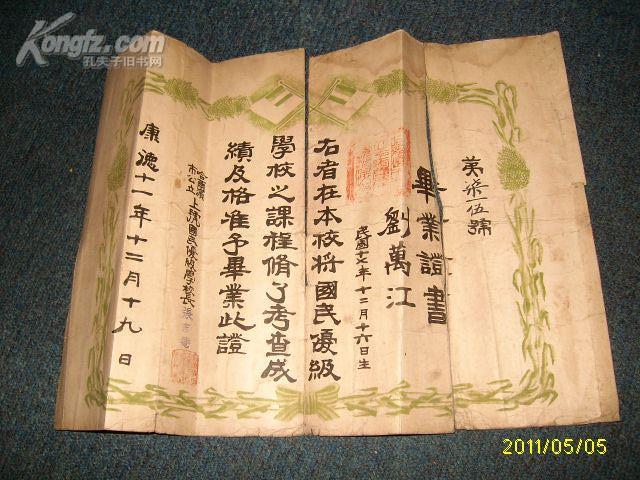 Kongfz.com
孔夫子旧书网
第柒一伍號
畢業證書
劉萬江
民國十七年十二月十六日生
右者在本校將國民優級
學校之課程脩了考查成
績及格准予畢業此證
哈爾濱
市公立
上號國民優級學校長張
康德十一年十二月十九日
2011/05/05